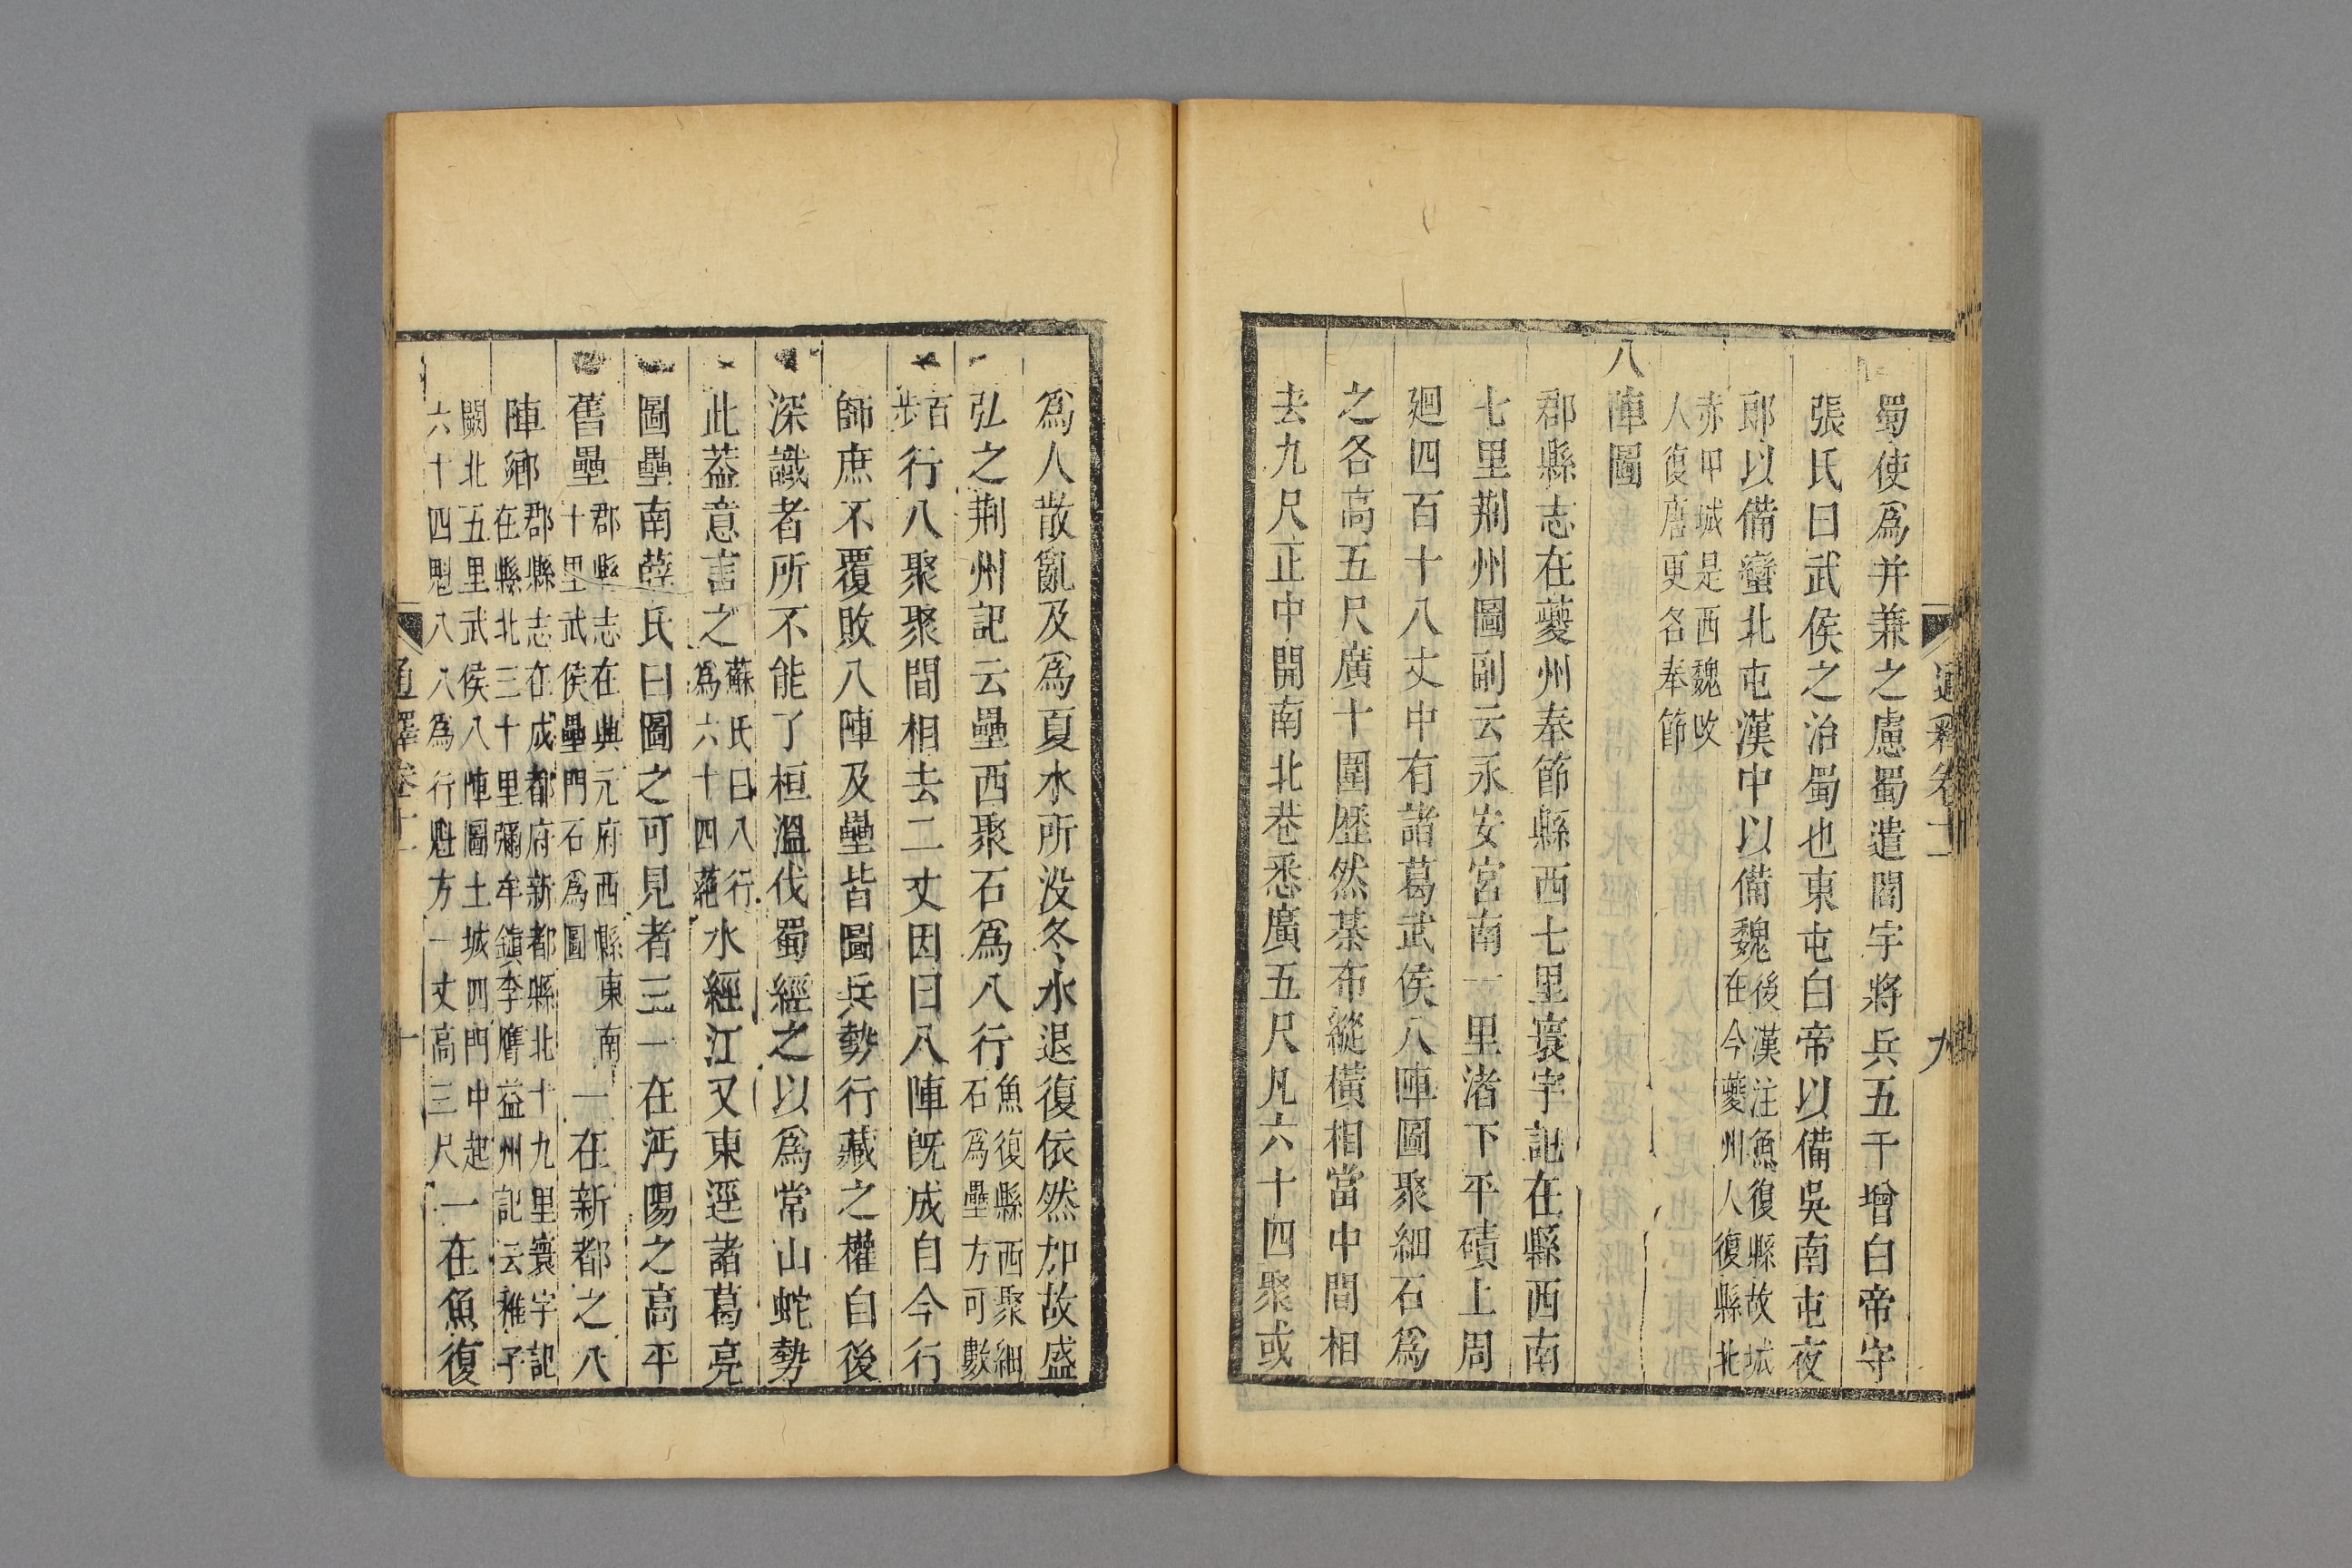 蜀使爲并兼之慮蜀遣閻宇將兵五千增白帝守
張氏曰武侯之治蜀也東屯白帝以備吳南屯夜
郎以備蠻北屯漢中以備魏後漢注魚復縣故城
在今夔州人復縣北
赤甲城是西魏改
人復唐更名奉節
八陣圖
郡縣志在夔州奉節縣西七里寰宇記在縣西南
七里荆州圖副云永安宮南一里渚下平磧上周
廻四百十八丈中有諸葛武侯八陣圖聚細石爲
之各高五尺廣十圍歷然棊布縱橫相當中間相
去九尺正中開南北巷悉廣五尺凡六十四聚或
爲人散亂及爲夏水所没冬水退復依然如故盛
弘之荆州記云壘西聚石爲八行魚復縣西聚細
石爲壘方可數
百
步行八聚聚間相去二丈因曰八陣旣成自今行
師庶不覆敗八陣及壘皆圖兵勢行藏之權自後
深識者所不能了桓溫伐蜀經之以爲常山蛇勢
此葢意言之蘇氏曰八行
爲六十四蕝水經江又東逕諸葛亮
圖壘南薛氏曰圖之可見者三一在沔陽之高平
舊壘郡縣志在興元府西縣東南
十里武侯壘門石爲圖一在新都之八
陣鄉郡縣志在成都府新都縣北十九里寰宇記
在縣北三十里彌牟鎮李膺益州記云稚子
闕北五里武侯八陣圖土城四門中起
六十四魁八八爲行魁方一丈高三尺一在魚復
通釋卷十一
九
通釋卷十一
十